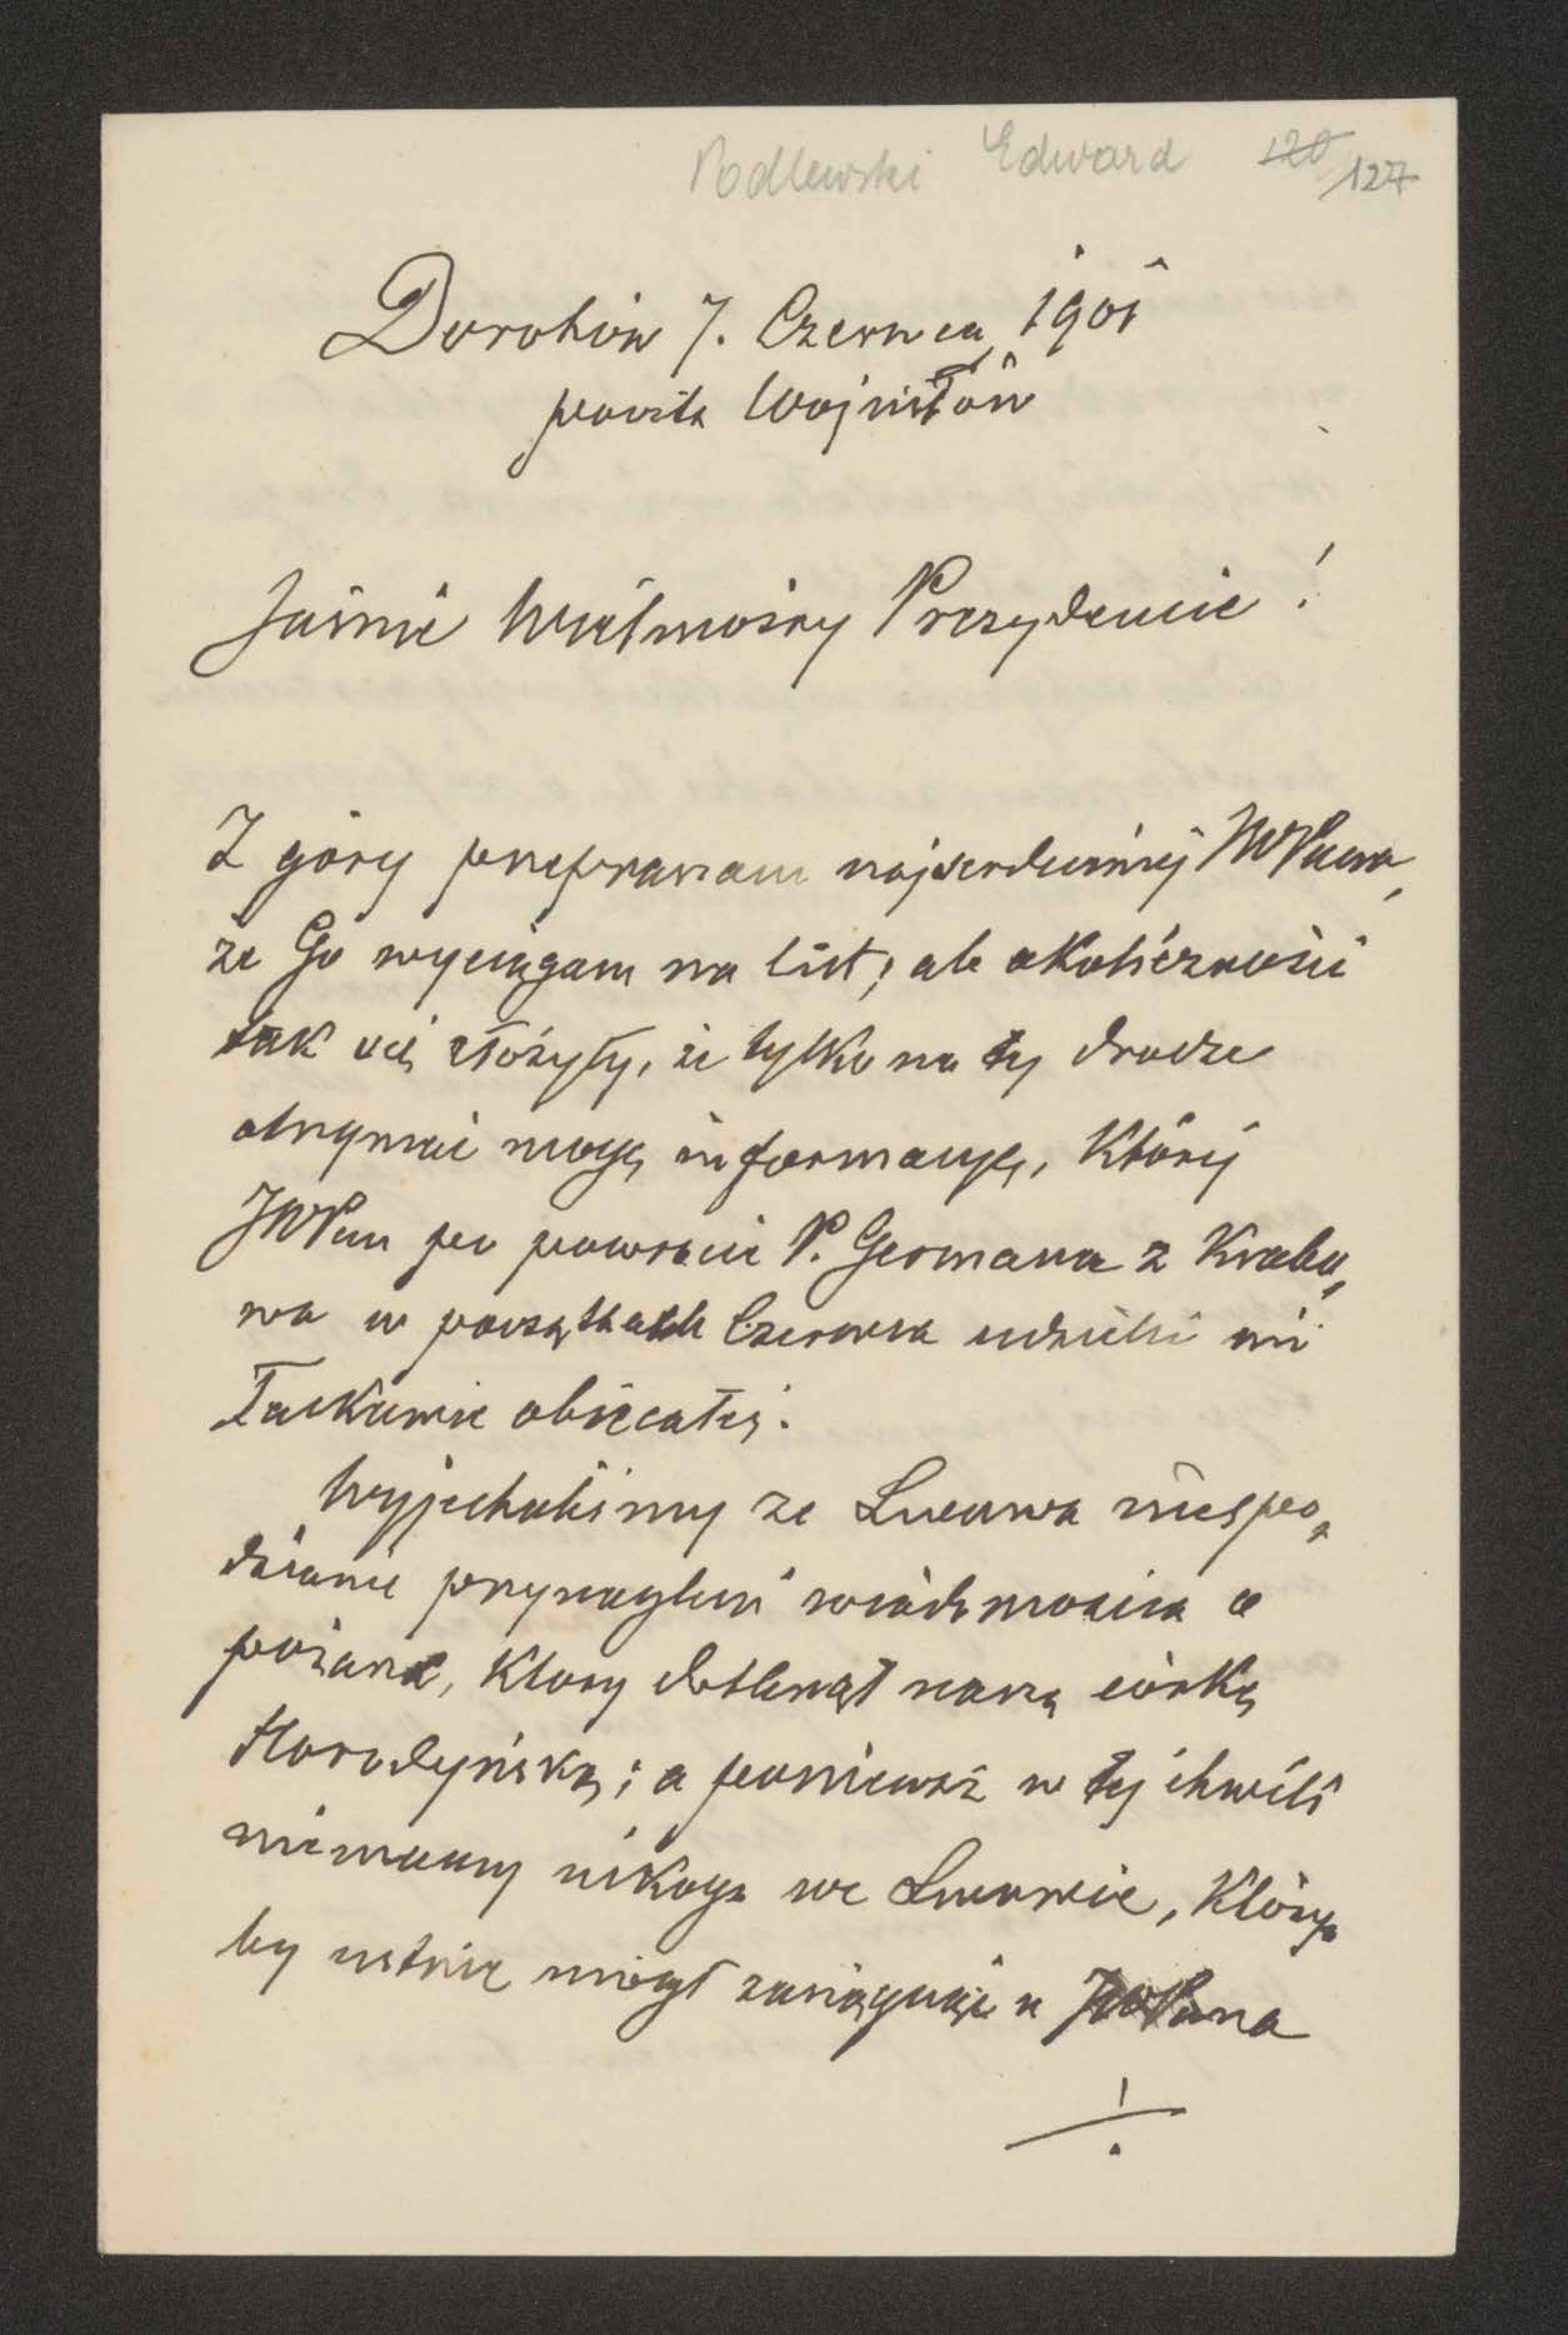 Podlewski Edward 120 127
Dorohów 7. Czerwca 1901
poczta Wojniłów
Jaśnie Wielmożny Prezydencie!
Z góry przepraszam najserdeczniej JWPana,
że Go wyciągam na list; ale okoliczności
tak się złożyły, że tylko na tej drodze
otrzymać mogę informację, której
JWPan po powrocie P. Germana z Krako„
wa w początkach Czerwca udzielić mi
łaskawie obiecałeś.
Wyjechaliśmy ze Lwowa niespo„
dzianie przynagleni wiadomością o
pożarze, który dotknął naszą córkę
Horodyńską; a ponieważ w tej chwili
niemamy nikogo we Lwowie, któryo
by ustnie mógł zasięgnąć u JWPana